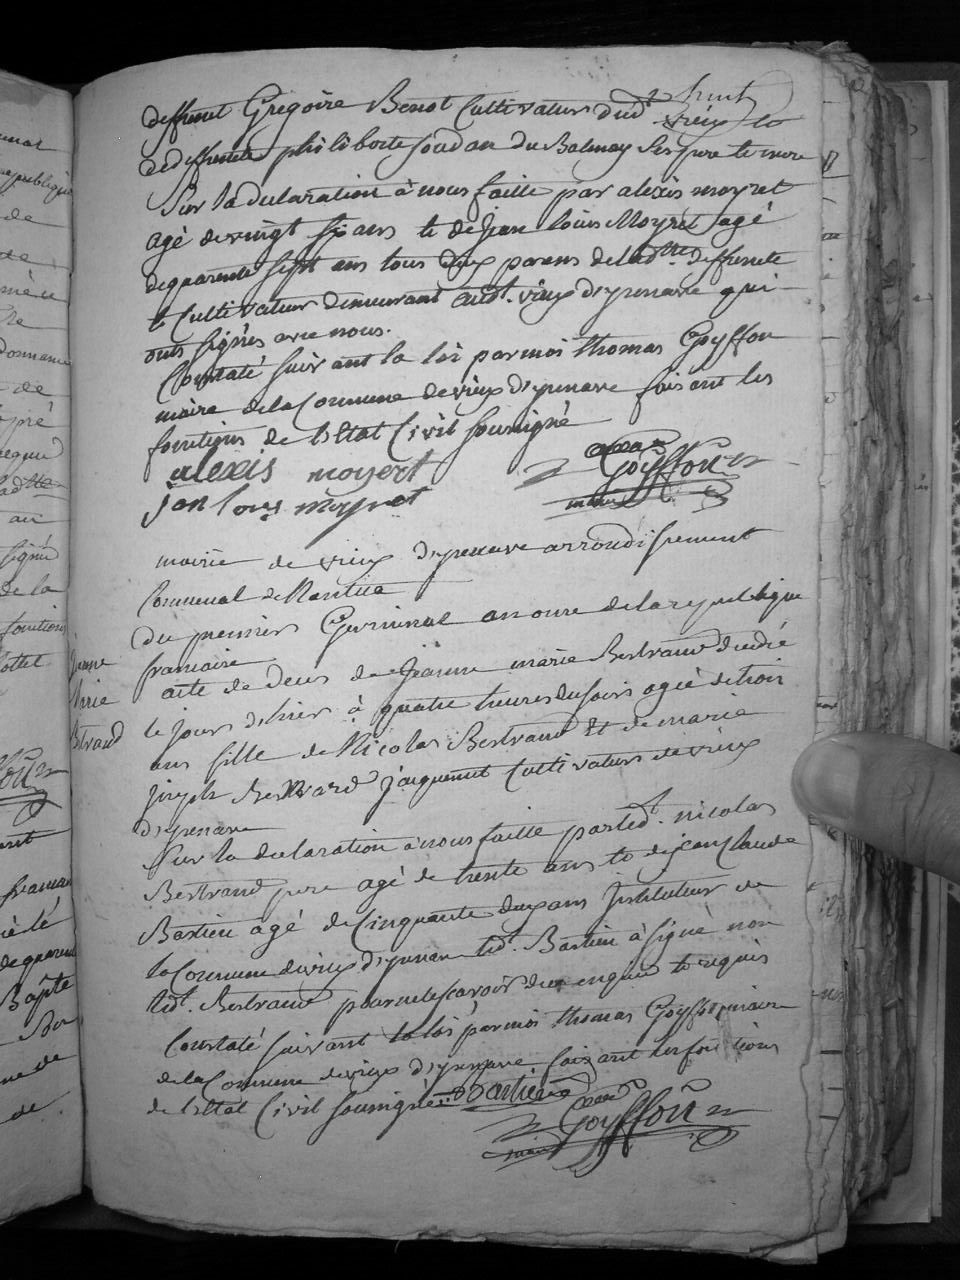 deffunct Gregoire Benot Cultivateur dud. vieux
de deffuncte philiberte soudan du Balmay ses pere te mere
Sur la declaration à nous faitte par alexis moyret
agé de vingt six ans te de jean louis Moyret agé
de quarente sept ans tous deux parens de lad.tte deffuncte
te Cultivateur demeurant aud.t vieux d'yzenave qui
onts signés avec nous.
Constaté suivant la loi par moi thomas Goyffon
maire de la Commune de vieux d'yzenave faisant les
fonctions de l'Etat Civil soussigné
alexis moyert
jan louis moyret
Goyffon
maire
mairie de vieux d'yzenave arrondissement
Communal de Nantua
du premier Germinal an onze de la republique
francaise
acte de deces de Jeanne marie Bertrand decedé
le jour d'hier à quatre heures du soir agée de trois
ans fille de Nicolas Bertrand Et de marie
joseph Bertrand jacquemet Cultivateurs de vieux
d'yzenave
Sur la declaration à nous faitte par led.t nicolas
Bertrand pere agé de trente ans te de jean Claude
Bastien agé de Cinquante deux ans Instituteur de
la Commune de vieux d'yzenave led.t Bastien à signé non
led.t Bertrand pour ne le scavoir de ce enquis te requis
Constaté suivant la loi par moi thomas Goyffon maire
de la Commune de vieux d'yzenave faisant les fonctions
de l'Etat Civil soussigné Bastien
Goyffon
maire
Jeanne
Marie
Bertrand